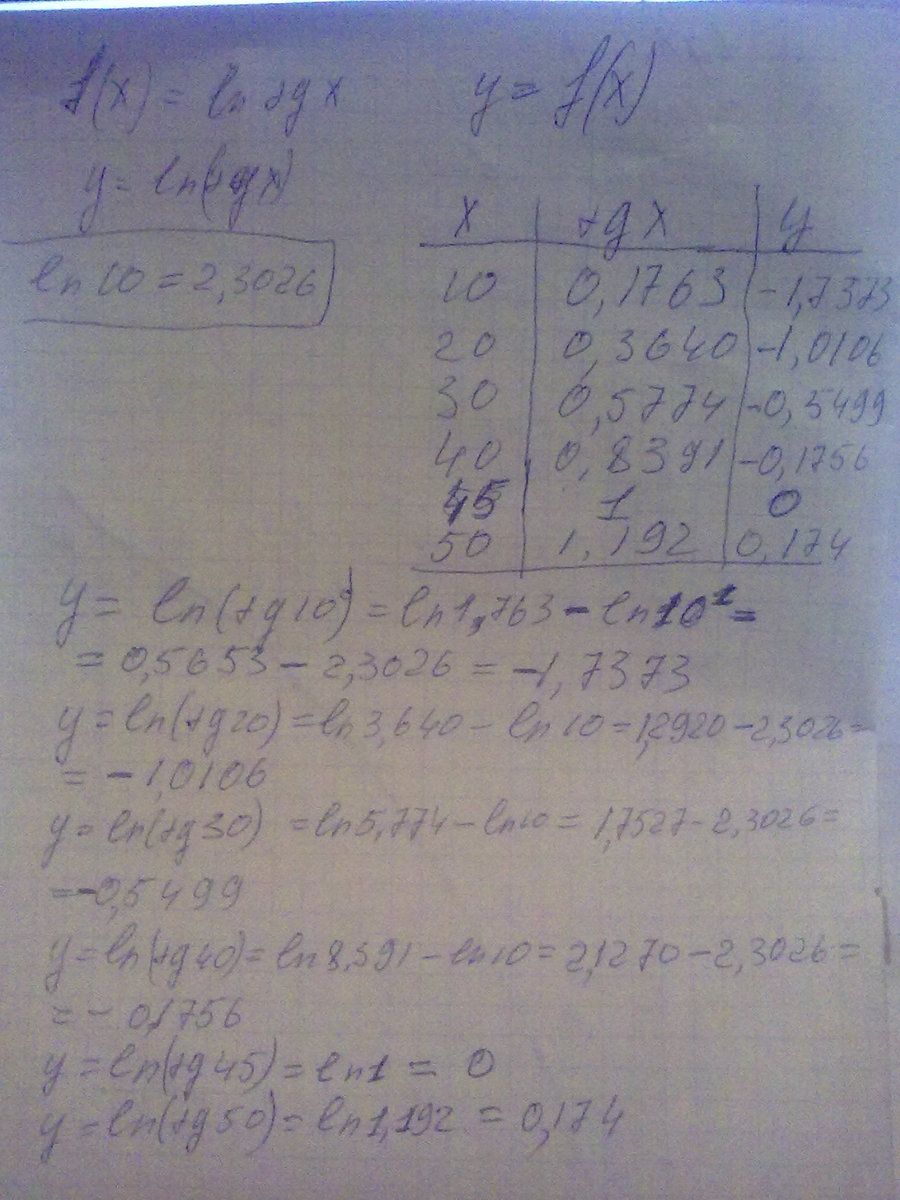 f(x) = ln tg x y = f(x)
y = ln(tg x)
ln 10 = 2,3026
x tg x y
10 0,1763 -1,7373
20 0,3640 -1,0106
30 0,5774 -0,5499
40 0,8391 -0,1756
45 1 0
50 1,192 0,174
y = ln(tg10°) = ln1,763 - ln10¹ =
= 0,5653 - 2,3026 = -1,7373
y = ln(tg20) = ln3,640 - ln10 = 1,2920 - 2,3026 =
= -1,0106
y = ln(tg30) = ln5,774 - ln10 = 1,7527 - 2,3026 =
= -0,5499
y = ln(tg40) = ln8,391 - ln10 = 2,1270 - 2,3026 =
= - 0,1756
y = ln(tg45) = ln1 = 0
y = ln(tg50) = ln1,192 = 0,174